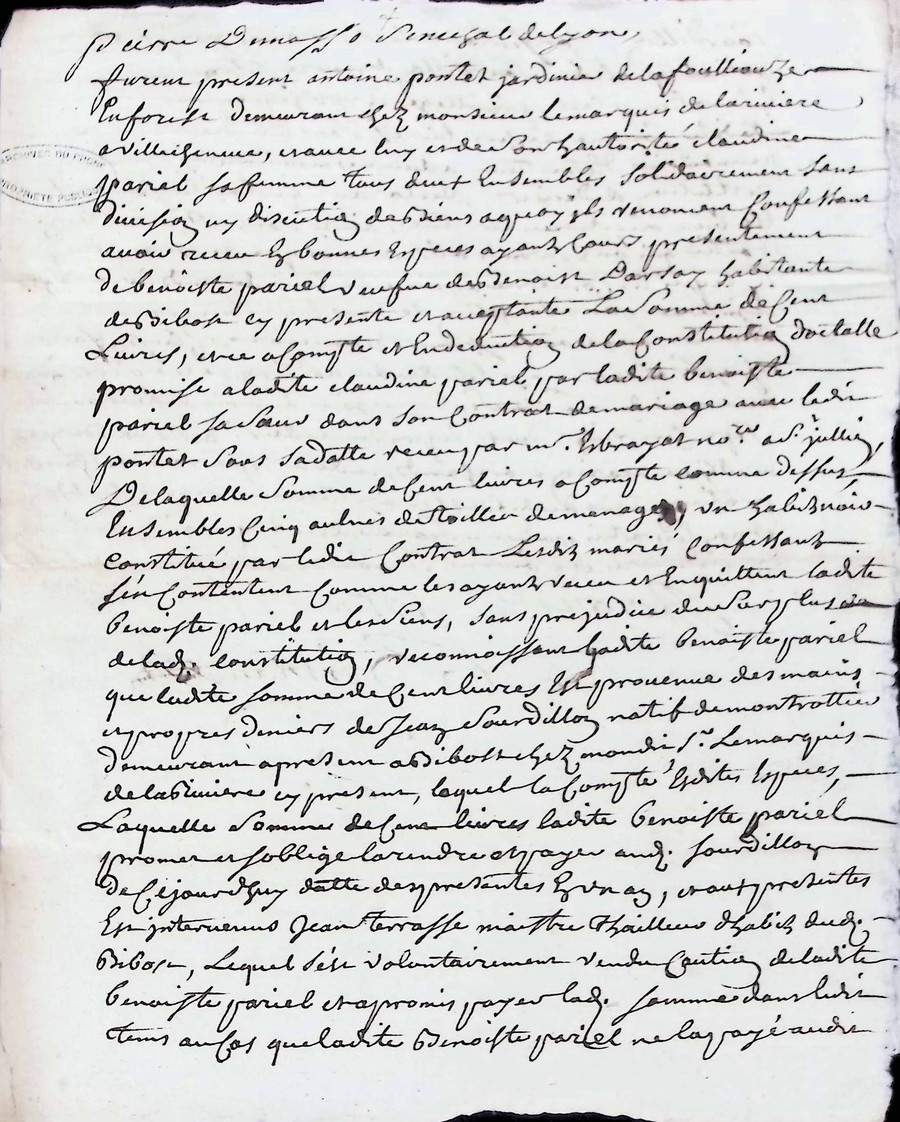 pierre Dumas So Senechal delyon,
furent present antoine pontet jardinié delafoulliouze
Enforest demeurant chez monsieur lemarquis delariviere
avillecheneue, et avec luy et de Son hautorité claudine
pariel safemme tous deux Ensembles solidairement sans
division ny discution desbiens aquoy ils renoncent Confessant
avoir receu En bonnes Especes ayant Cours presentement
de benoiste pariel veufue de Benoist Darsay habitante
de Bibost cy presente et acceptante La Somme de Cent
Livres, et ce acompte et En deduction de la Constitution dotalle
promise aladite claudine pariel par ladite benoiste
pariel sa Sœur dans son Contrat demariage avec ledit
pontet sous sadatte receu par mr. Esbrayat nore. a St. jullien,
De laquelle Somme de Cent livres acompte comme dessus,
Ensembles Cinq aulnes de toille de menage, un habit noir
constitué par ledit Contrat Lesdits mariés confessant
s'én Contentent comme les ayant receu et Enquittent ladite
benoiste pariel et les Siens, sans prejudice du Surplus
de lad. constitution, reconnoissant ladite benoiste pariel
que ladite somme de Cent livres Est provenue des mains
et propres deniers de Jean Sourdillon natif de montrottier
demeurant apresent a Bibost chez mondit Sr. Lemarquis
de la Riviere cy present, lequel la Compté Esdites Especes,
Laquelle Somme de Cent livres ladite benoiste pariel
promet et soblige larendre et payer aud. sourdillon
de Cejourdhuy datte des presentes En un an, et aux presentes
Est intervenus Jean terrasse maistre thailleur dhabit dud.
Bibost, Lequel s'ést volontairement rendu Caution de ladite
benoiste pariel et apromis payer lad. somme dans ledit
tems au Cas que ladite Benoiste pariel ne la payé audit